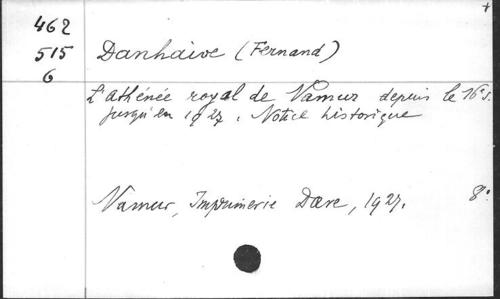 462
515
6
Danhaive (Fernand)
L'athénée royal de Namur depuis le 16e s.
jusqu'en 1927. Notice historique
Namur, Imprimerie Dave, 1927. 8°